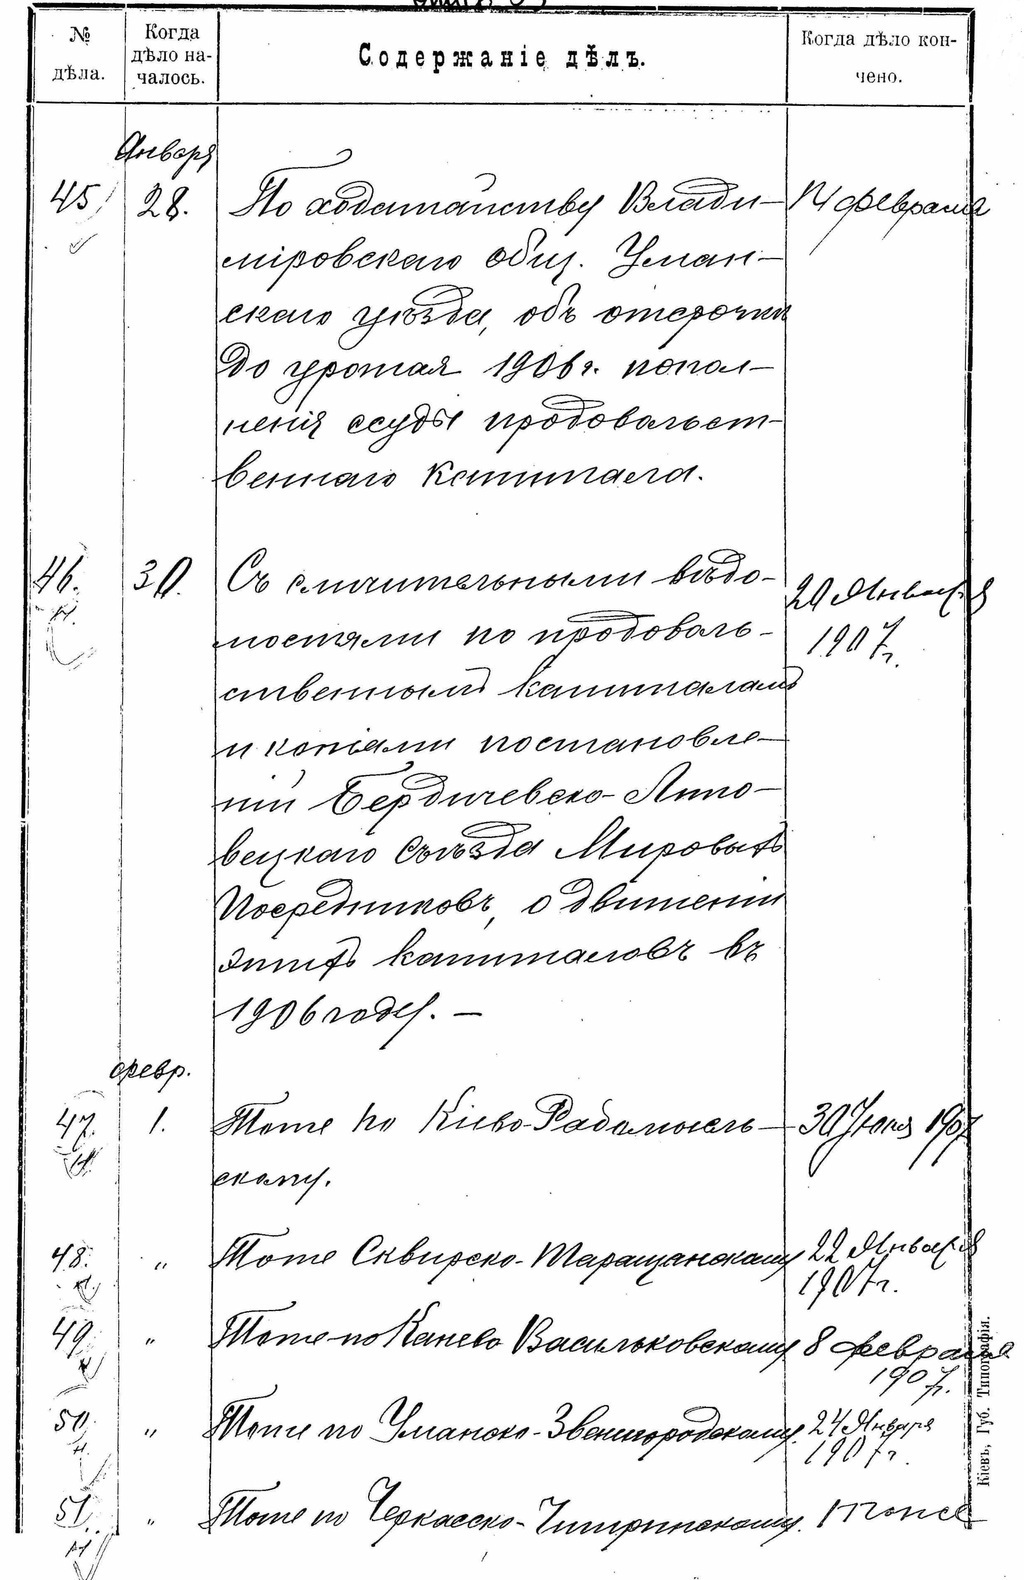 № дѣла.
Когда дѣло началось.
Содержаніе дѣлъ.
Когда дѣло кончено.
Января
45 28. По ходатайству Влади- 14 февраля
міровскаго общ. Уман-
скаго уѣзда, объ отсрочкѣ
до урожая 1906 г. попол-
ненія ссуды продовольст-
веннаго капитала.
46. 30. Съ сличительными вѣдо- 20 Января
мостями по продоволь- 1907 г.
ственнымъ капиталамъ
и копіями постановле-
ній Бердичевско-Липо-
вецкаго Съѣзда Мировыхъ
Посредниковъ, о движеніи
этихъ капиталовъ въ
1906 году. —
февр.
47. 1. Тоже по Кіево-Радомысль- 30 Іюля 1907
скому.
48. „ Тоже Сквирско-Таращанскому 22 Января
1907 г.
49. „ Тоже по Канево Васильковскому 8 февраля
1907 г.
50. „ Тоже по Уманско-Звенигородскому. 24 Января
1907 г.
51. „ Тоже по Черкасско-Чигиринскому. тоже
Кіевъ, Губ. Типографія.